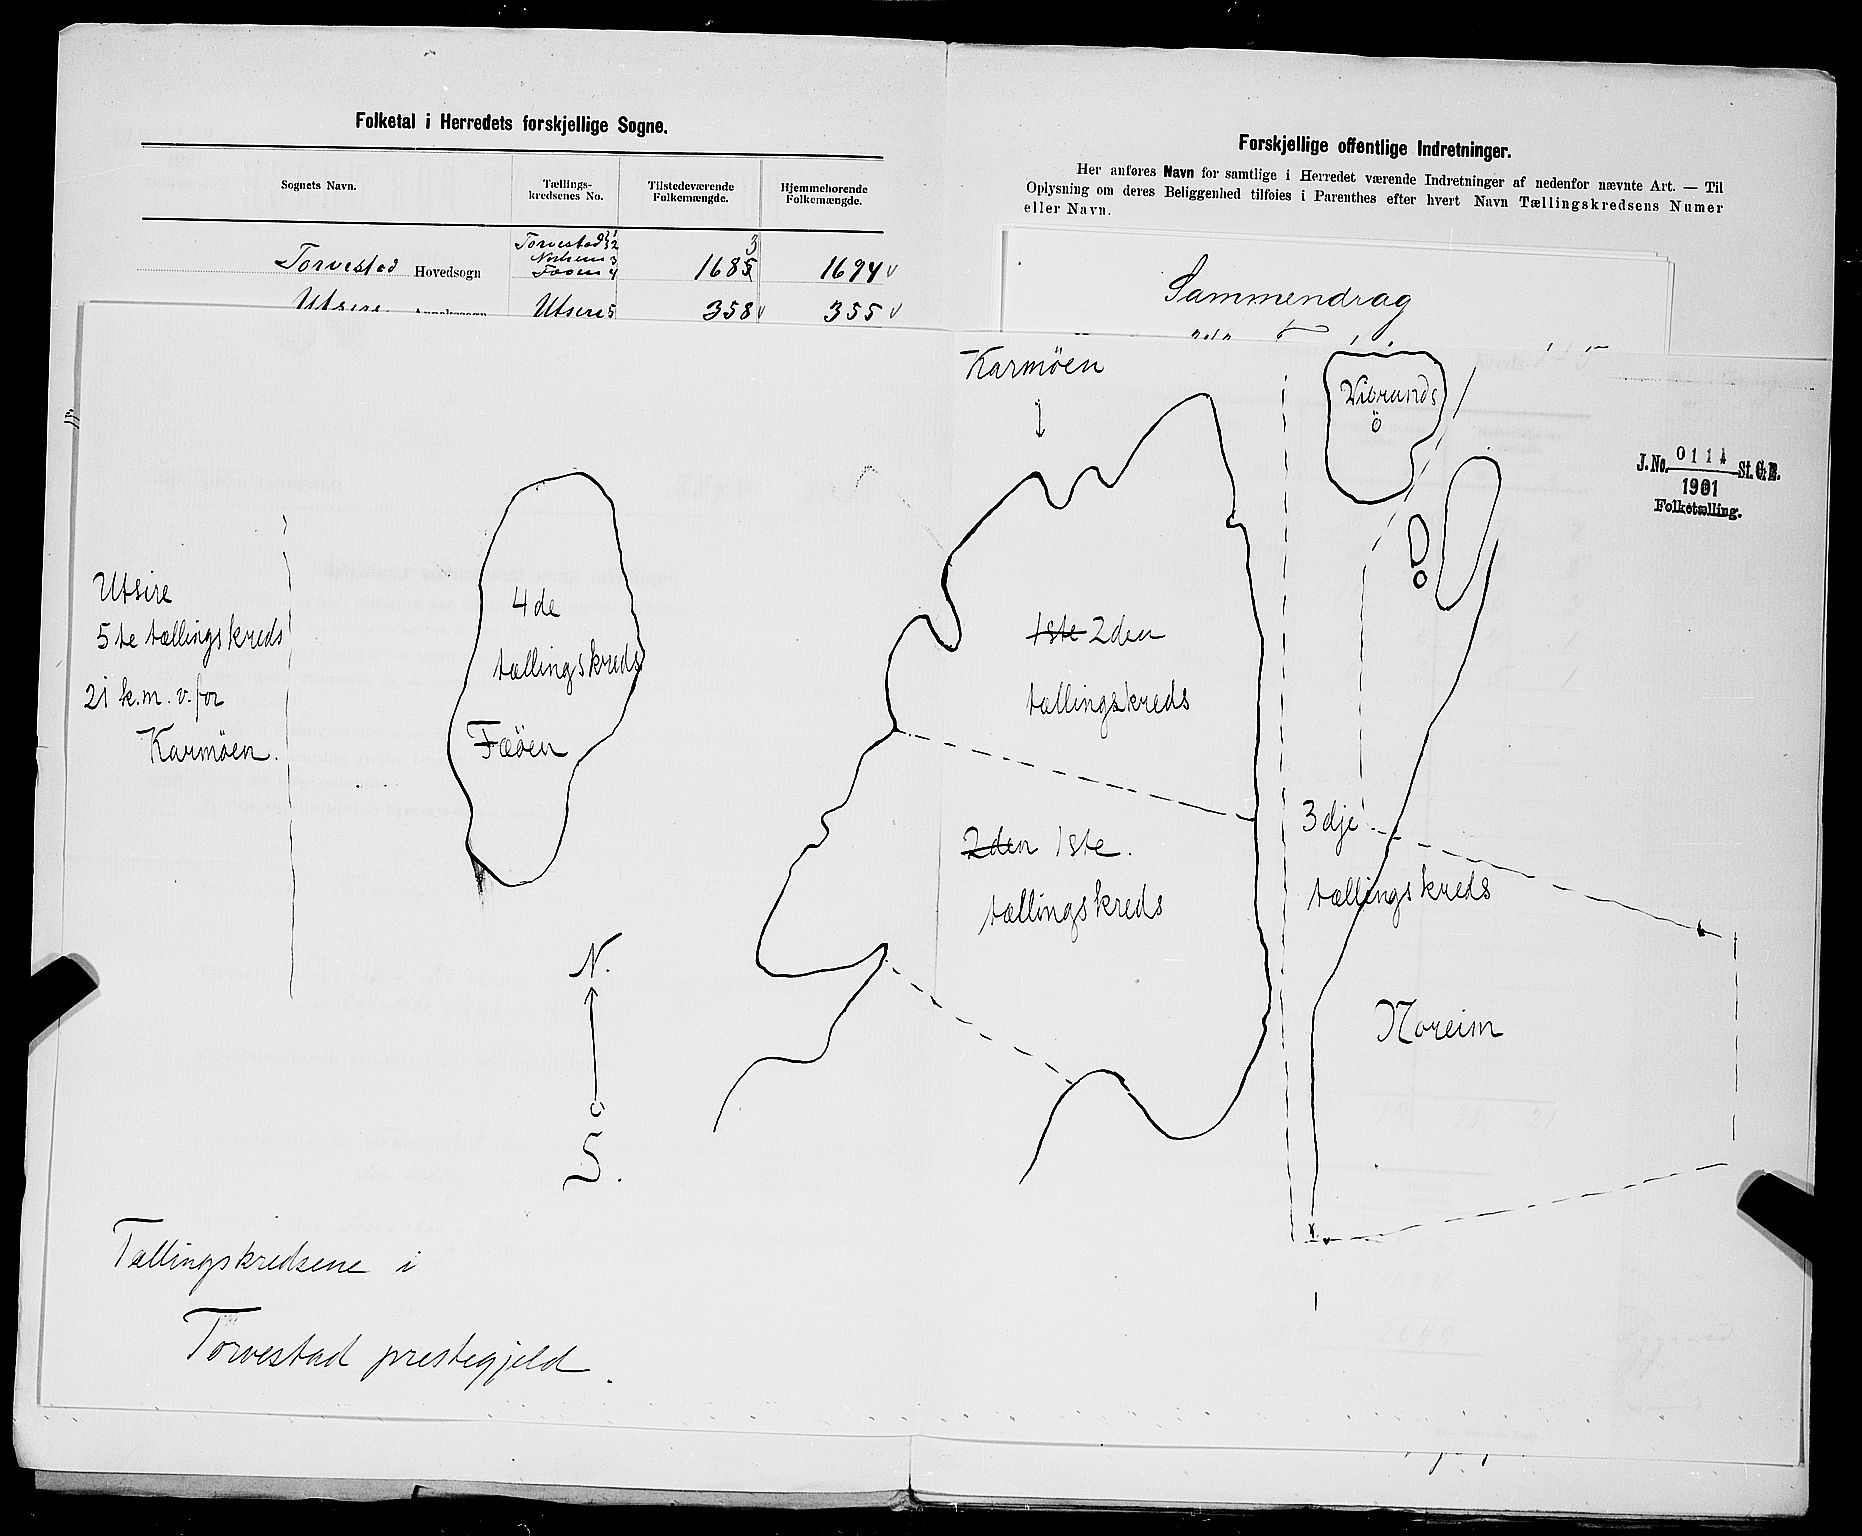 Folketal i Herredets forskjellige Sogne.
Sognets Navn.
Tællings-
kredsenes No.
Tilstedeværende
Folkemængde.
Hjemmehørende
Folkemængde.
Torvestad Hovedsogn
Torvestad 1 2
3
4
3
1685
1694
Utsire
Utsire 5
358
355
Forskjellige offentlige Indretninger.
Her anføres Navn for samtlige i Herredet værende Indretninger af nedenfor nævnte Art. — Til
Oplysning om deres Beliggenhed tilføies i Parenthes efter hvert Navn Tællingskredsens Numer
eller Navn.
Sammendrag
J. No. 0111 St. C. B.
1901
Folketælling.
Karmöen
Vibrands
ö
Utsire
5te tællingskreds
21 k.m. v. for
Karmöen.
4de
tællingskreds
Fæöen
1ste 2den
tællingskreds
2den 1ste.
tællingskreds
3dje
tællingskreds
Noreim
N.
S.
Tællingskredsene i
Torvestad prestegjeld.